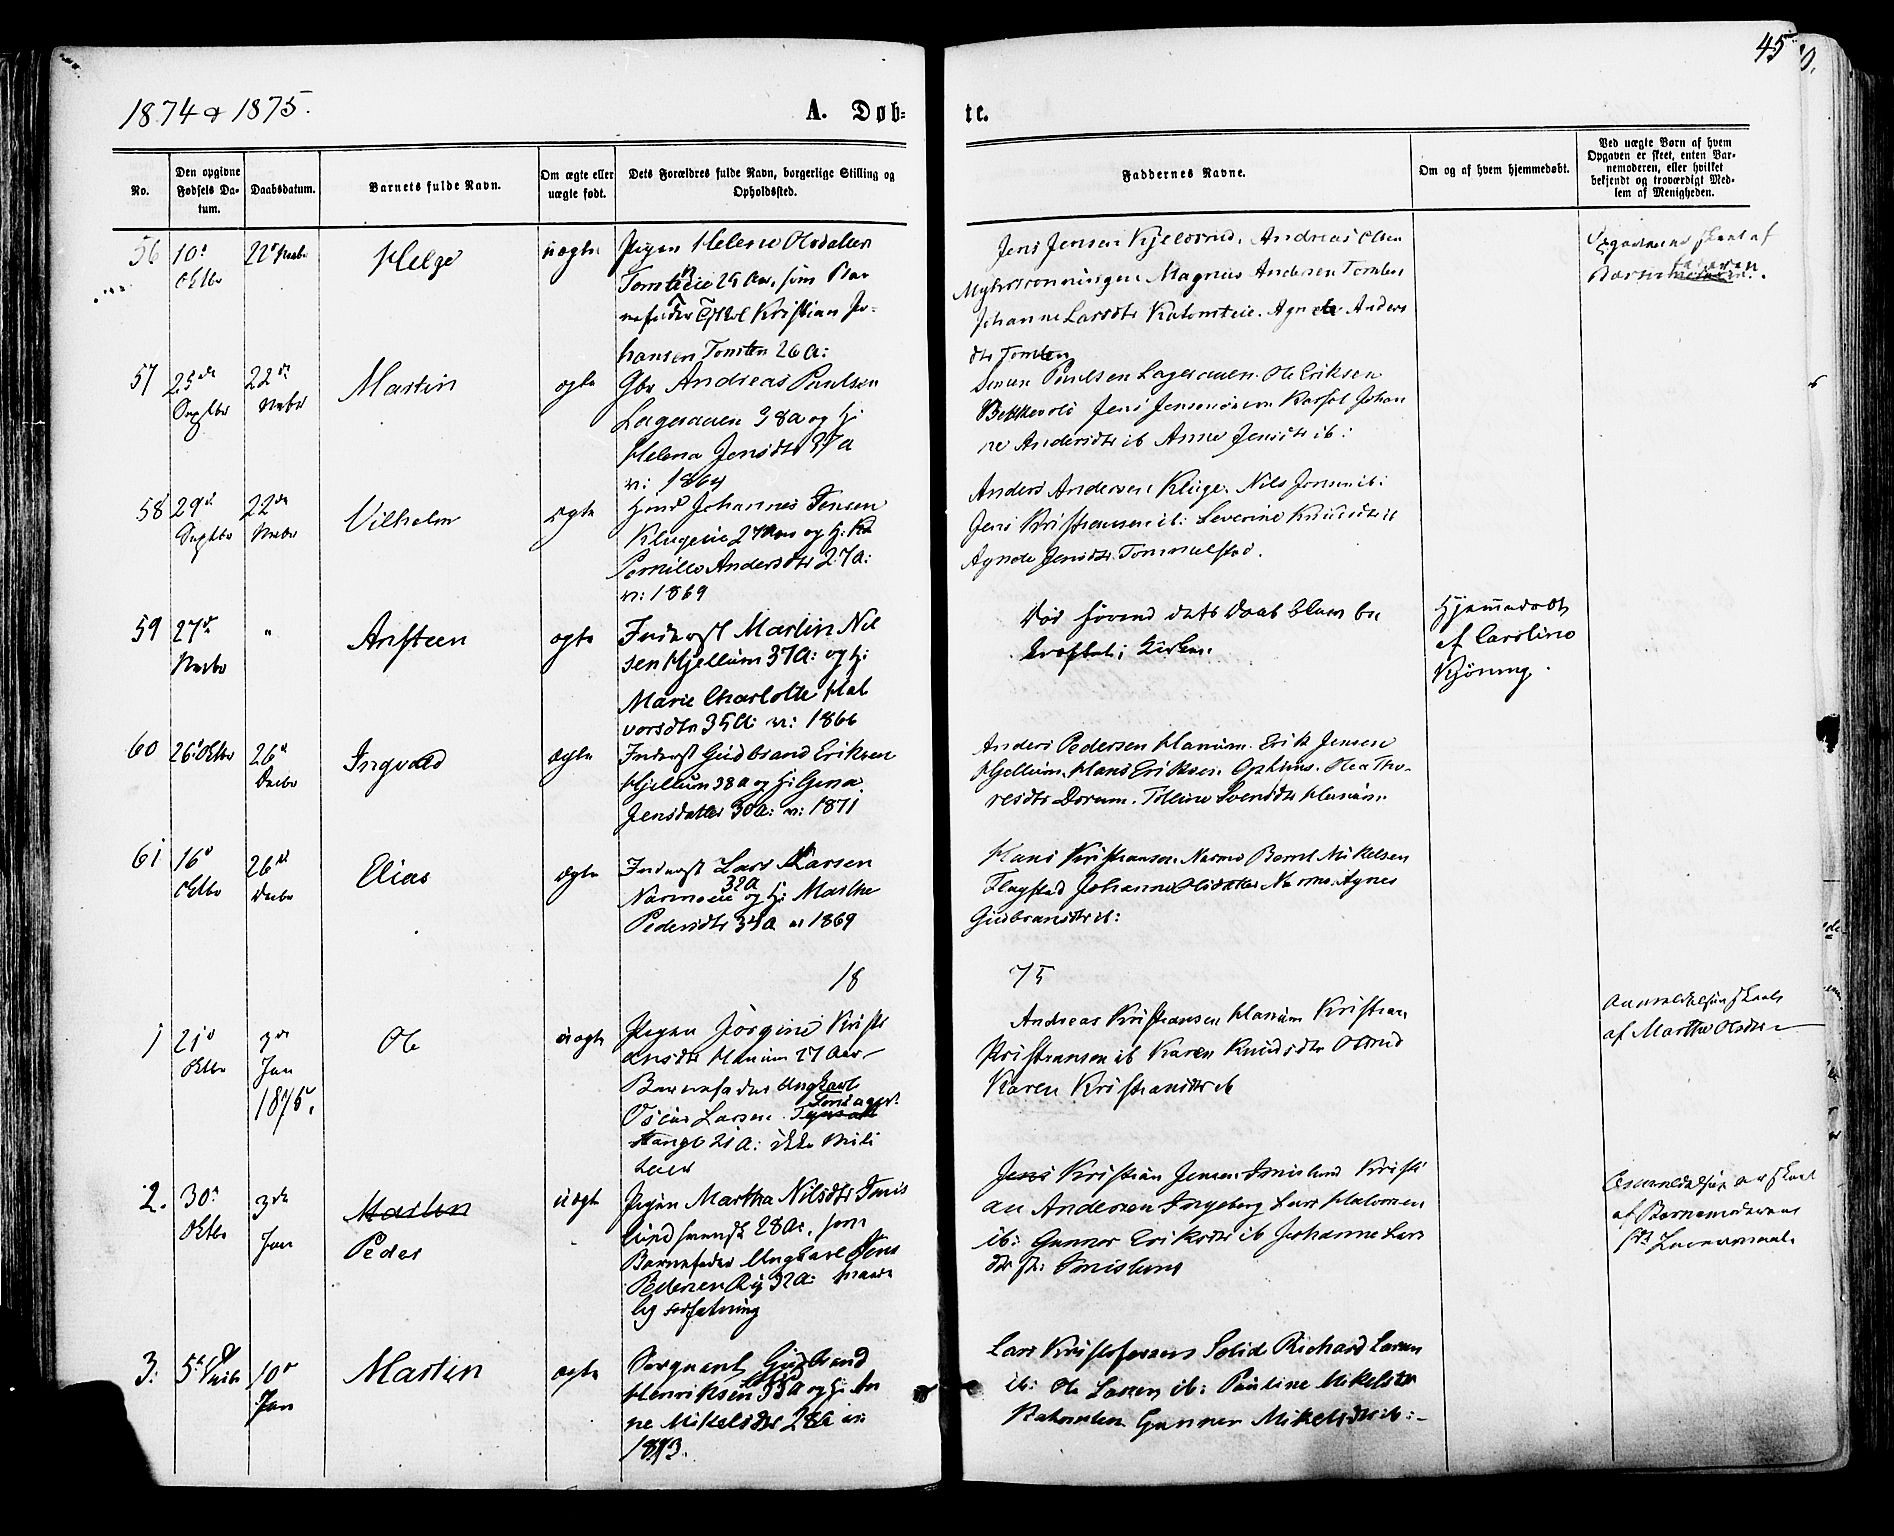 45
1874 & 1875.
A. Døb-
te.
No.
Den opgivne Fødsels Da-tum.
Daabsdatum.
Barnets fulde Navn.
Om ægte eller uægte født.
Dets Forældres fulde Navn, borgerlige Stilling og Opholdssted.
Faddernes Navne.
Om og af hvem hjemmedøbt.
Ved uægte Børn af hvem Opgaven er skeet, enten Bar-nemoderen, eller hvilket bekjendt og troværdigt Med-lem af Menigheden.
56
10de Oktbr
22de Novbr
Helge
uægte
Pigen Helene Olsdatter
Tomteneie 25 Aar, som Bar
nefader Kristian Jo-
hansen Tomten 26 A:
Jens Jensen Kjelsrud. Andreas Olsen
Magnus Andersen Tomten
Johanne Larsdtr Agnete Anders
dtr Tomten
skeet af
faderen.
57
25de Septbr
22de Novbr
Martin
ægte
Gbr Andreas Paulsen
38 A og H:
Helena Jensdtr 37 A
v: 1864
Paulsen Ole Eriksen
Jens Johan
ne Andersdtr ib Anne Jensdtr ib:
58
29de Septbr
22de Novbr
Vilhelm
ægte
Hmd Johannes Jensen
Klugeeie 27 Aar og H:
Pernille Andersdtr 27 A:
v: 1869
Anders Andersen Kluge. Nils Jensen ib:
Jens Kristiansen ib: Severine Knudsdtr ib
Agnde Jensdtr Tommelstad.
59
27de Novbr
"
Arsteen
ægte
Inderst Martin Nil
sen Hjellum 37 A: og H:
Marie Charlotte Hal
vorsdtr 35 A: v: 1866
Død førend dets Daab blev be
kræftet i Kirken.
Hjemmedøbt
af Caroline
Kjönig.
60
26de Oktbr
26de Decbr
Ingvald
ægte
Inderst Gudbrand Eriksen
Hjellum 38 A og H: Gina
Jensdatter 30 A: v: 1871
Anders Pedersen Hanum. Erik Jensen
Hjellum. Hans Eriksen Opthus. Olea Tho-
resdtr Dorum. Svensdtr Hanum.
61
16de Oktbr
26de Decbr
Elias
ægte
Inderst Lars Larsen
Narmoeie 32 A og H: Marthe
Pedersdtr 34 A v 1869
Hans Kristiansen Narmo Bernt Mikelsen
Flagstad Johanne Olsdatter Narmo. Agnes
Gudbransdtr ib:
18
75
1
21de Oktbr
3de Jan 1875.
Ole
uægte
Pigen Jörgine Kristi
ansdtr Hanum 27 Aar
Barnefader Ungkarl
Oscar Larsen
Stange 21 A: ikke Mili
tær
Andreas Kristiansen Hanum Kristian
Kristiansen ib Karen Knudsdtr Olsrud
Karen Kristiansdtr ib
Anmeldelsen skeet
af Marthe Olsdtr
2.
30de Oktbr
3de Jan
Martin
Peder
uægte
Pigen Martha Nilsdtr Imis
lund svensk 28 A:, som
Barnefader Ungkarl Jens
Pedersen Ry 32 A:
lig forfatning
Jens Kristian Jensen Imislund Kristi
an Andersen Ingeberg Lars Halvorsen
ib: Gunnor Eriksdtr ib Johanne Lars
dtr Imislund
Anmeldelsen er skeet
af Barnemoderens
3.
5te Novbr
10de Jan
Martin
ægte
Sergeant Gudbrand
Henriksen 33 A og H: An
ne Mikelsdtr 28 A v:
1873.
Lars Kristofersen Solid Richard Larsen
ib: Ole Larsen ib: Pauline Mikelsdtr
Gunnor Mikelsdtr ib: